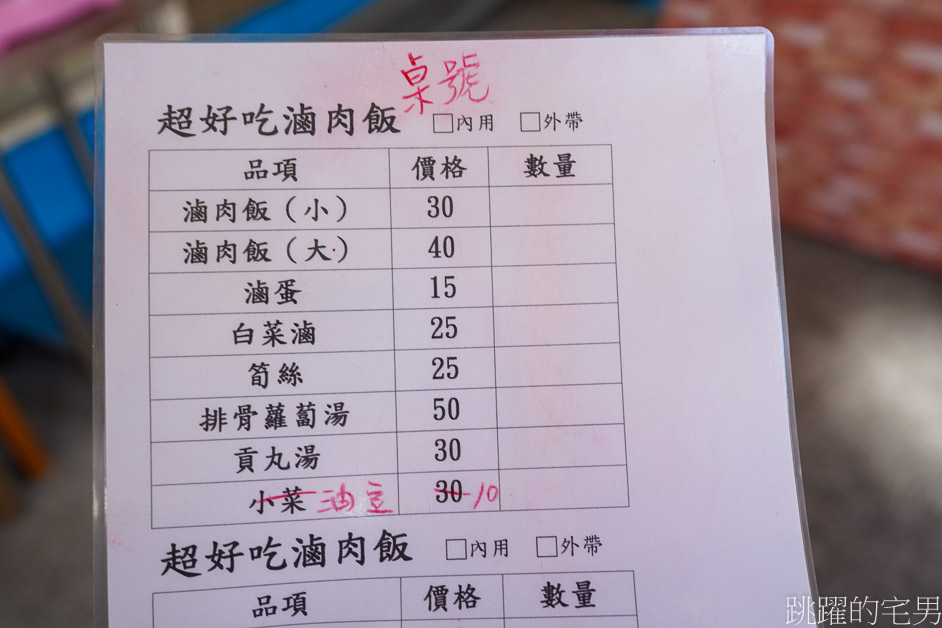 桌號
超好吃滷肉飯 □內用 □外帶
品項 價格 數量
滷肉飯（小） 30
滷肉飯（大） 40
滷蛋 15
白菜滷 25
筍絲 25
排骨蘿蔔湯 50
貢丸湯 30
小菜 油豆 30 10
超好吃滷肉飯 □內用 □外帶
品項 價格 數量
跳躍的宅男